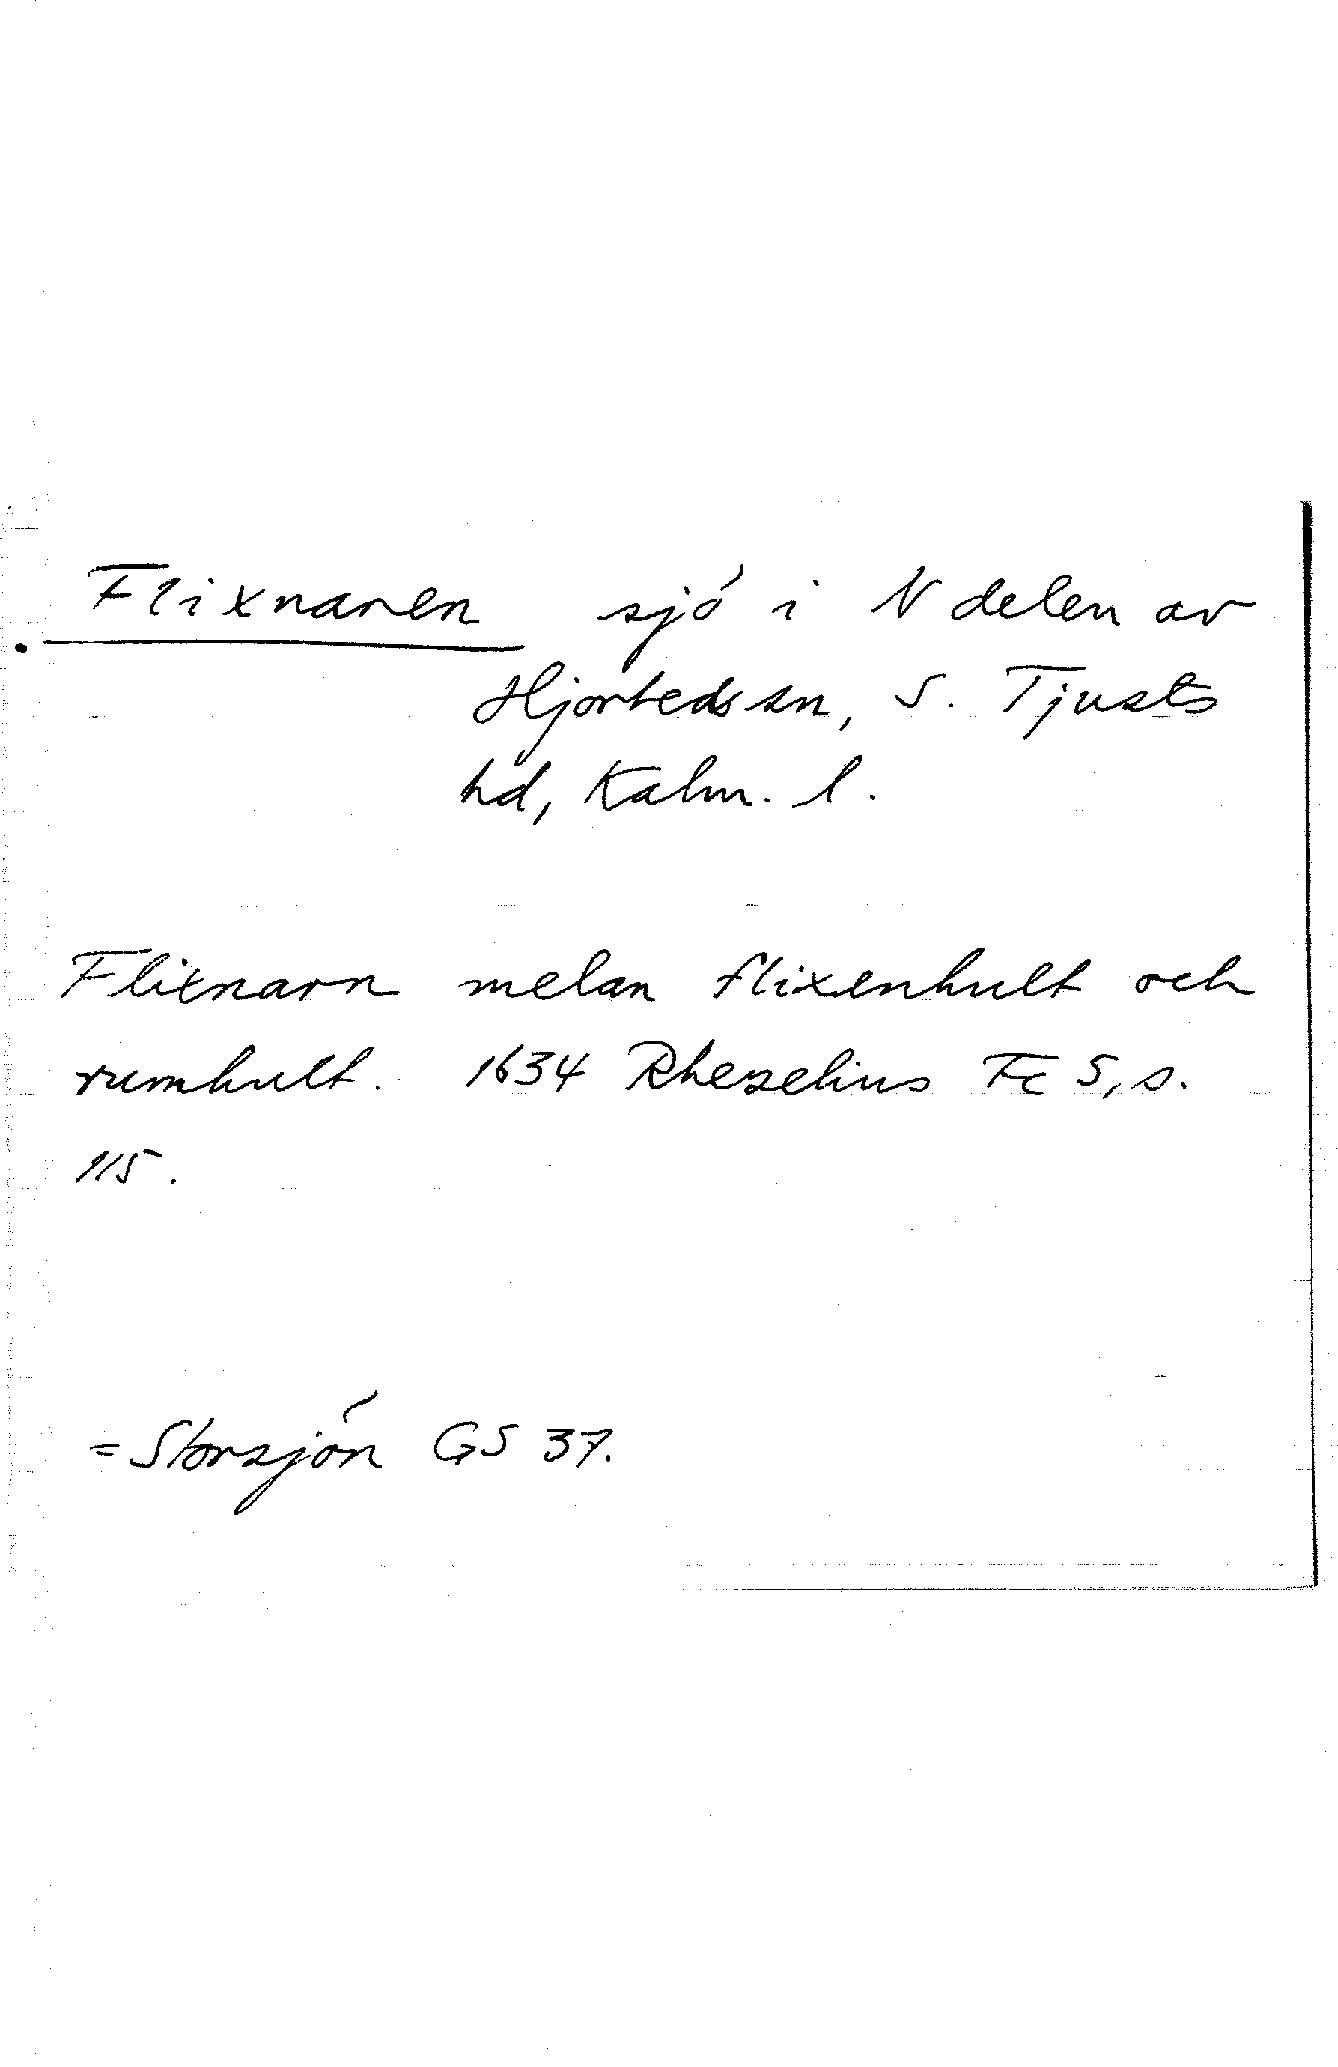 Flixnaren sjö i N delen av
Hjorteds sn, S. Tjusts
hd, Kalm. l.
Flixnarn melan flixenhult och
rumhult. 1634 Rhezelius Fc 5, s.
115.
= Storsjön GS 37.